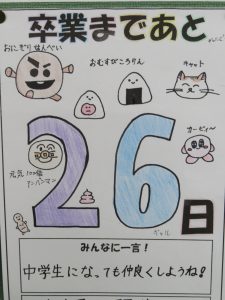 卒業まであと
おにぎりせんべい
おむすびころりん
キャット
カービィー
26
元気100倍
アンパンマン
ギャル
日
みんなに一言！
中学生になっても仲良くしようね！